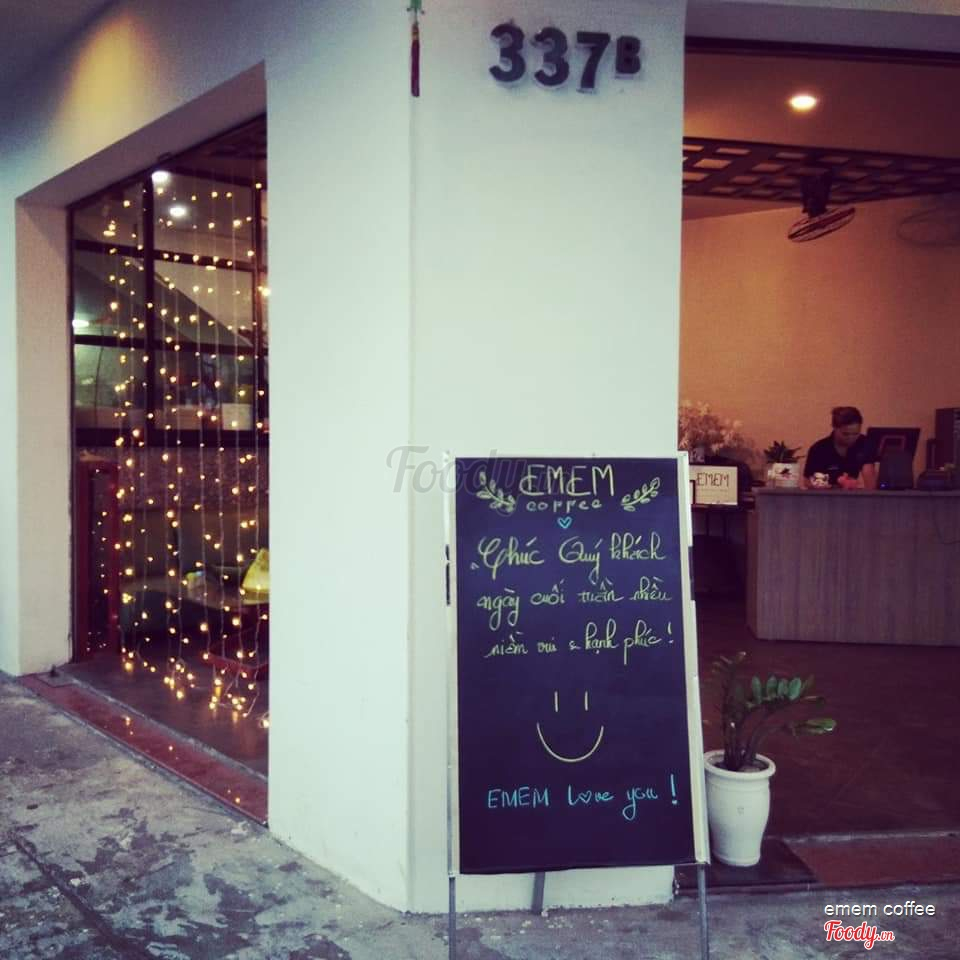 337B
Foody.vn
EMEM
EMEM
coffee
Chúc Quý khách
ngày cuối tuần nhiều
niềm vui & hạnh phúc!
EMEM Love you!
emem coffee
Foody.vn